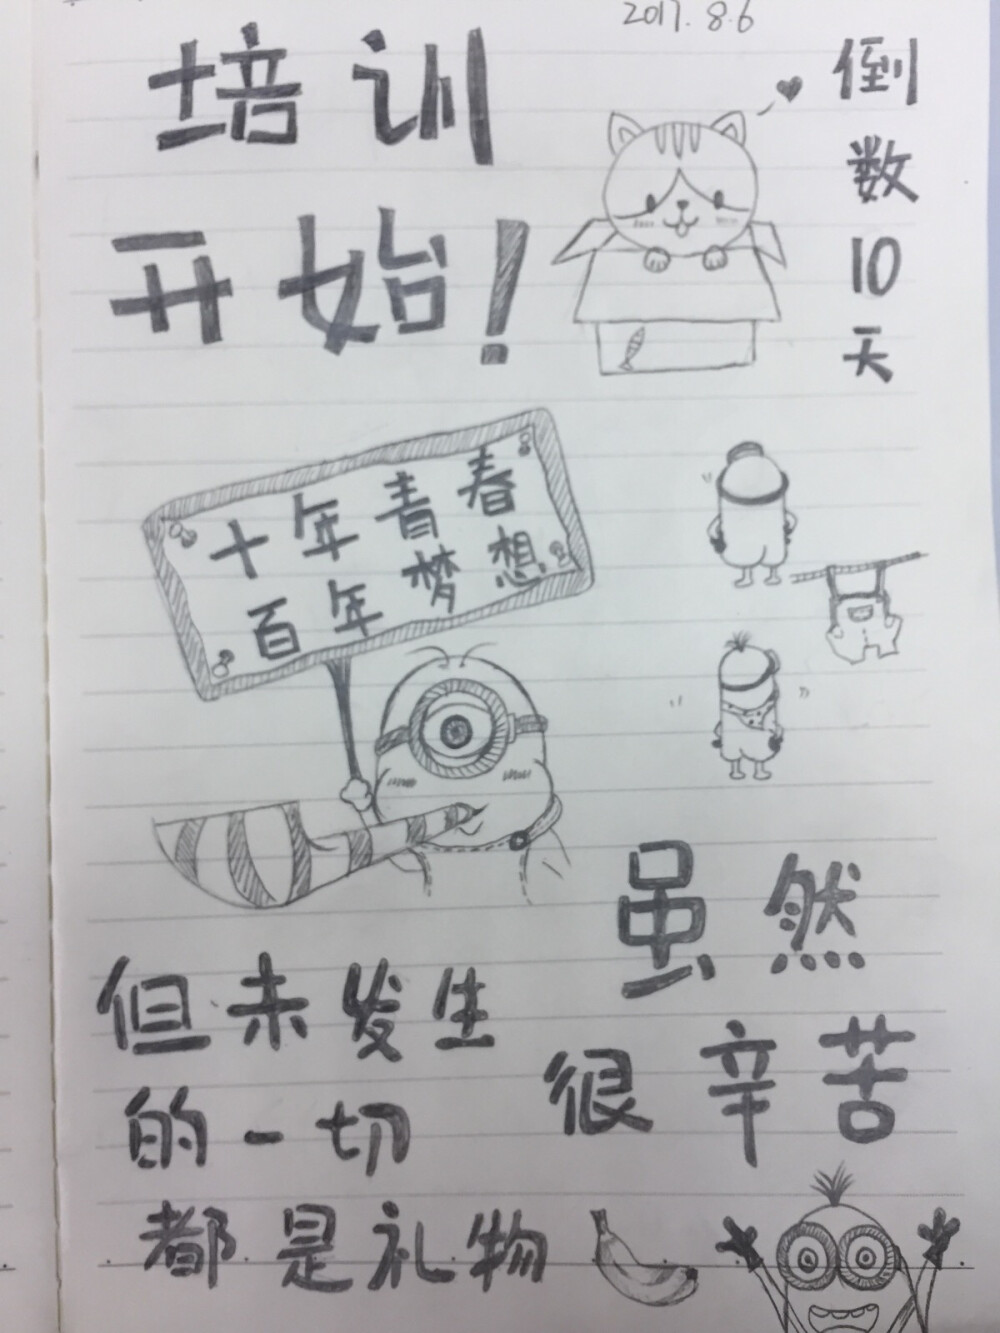 2017.8.6
培训
开始！
倒数10天
十年青春
百年梦想
虽然
很辛苦
但未发生
的一切
都是礼物